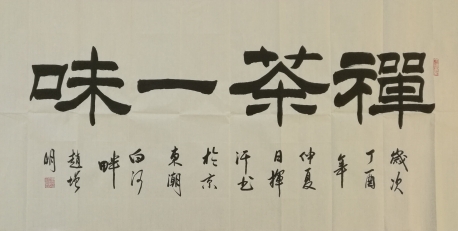 禪茶一味
歲次
丁酉
年
仲夏
日揮
汗书
於京
東潮
白河
畔
趙
明